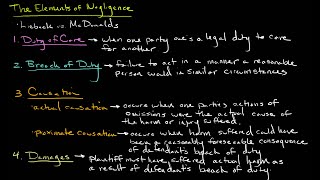 The Elements of Negligence
· Liebeck vs McDonalds
1. Duty of Care → when one party owe's a legal duty to care
for another
2. Breach of Duty → failure to act in a manner a reasonable
person would in similar circumstances
3. Causation
· actual causation → occurs when one party's actions of
omissions were the actual cause of
the harm or injury suffered.
· poximate causation → occurs when harm suffered could have
been a reasonably foreseeable consequence
of defendants breach of duty.
4. Damages → plaintiff must have suffered actual harm as
a result of defendants breach of duty.